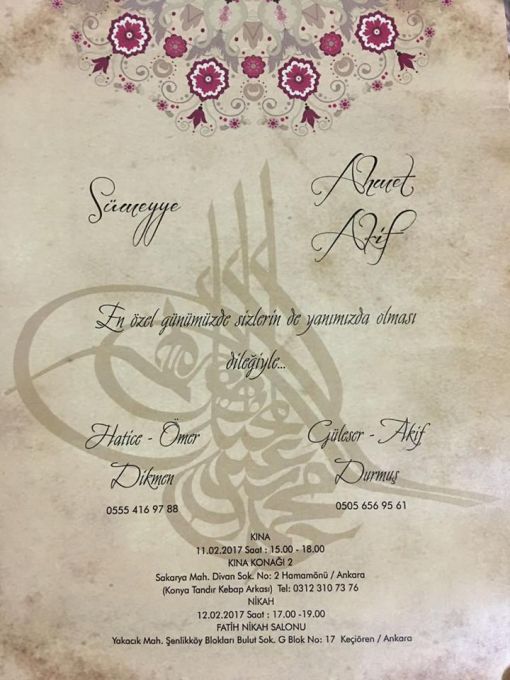 Sümeyye
Ahmet
Akif
En özel günümüzde sizlerin de yanımızda olması
dileğiyle...
Hatice - Ömer
Dikmen
0555 416 97 88
Güleser - Akif
Durmuş
0505 656 95 61
KINA
11.02.2017 Saat : 15.00 - 18.00
KINA KONAĞI 2
Sakarya Mah. Divan Sok. No: 2 Hamamönü / Ankara
(Konya Tandır Kebap Arkası) Tel: 0312 310 73 76
NİKAH
12.02.2017 Saat : 17.00 -19.00
FATİH NİKAH SALONU
Yakacık Mah. Şenlikköy Blokları Bulut Sok. G Blok No: 17 Keçiören / Ankara